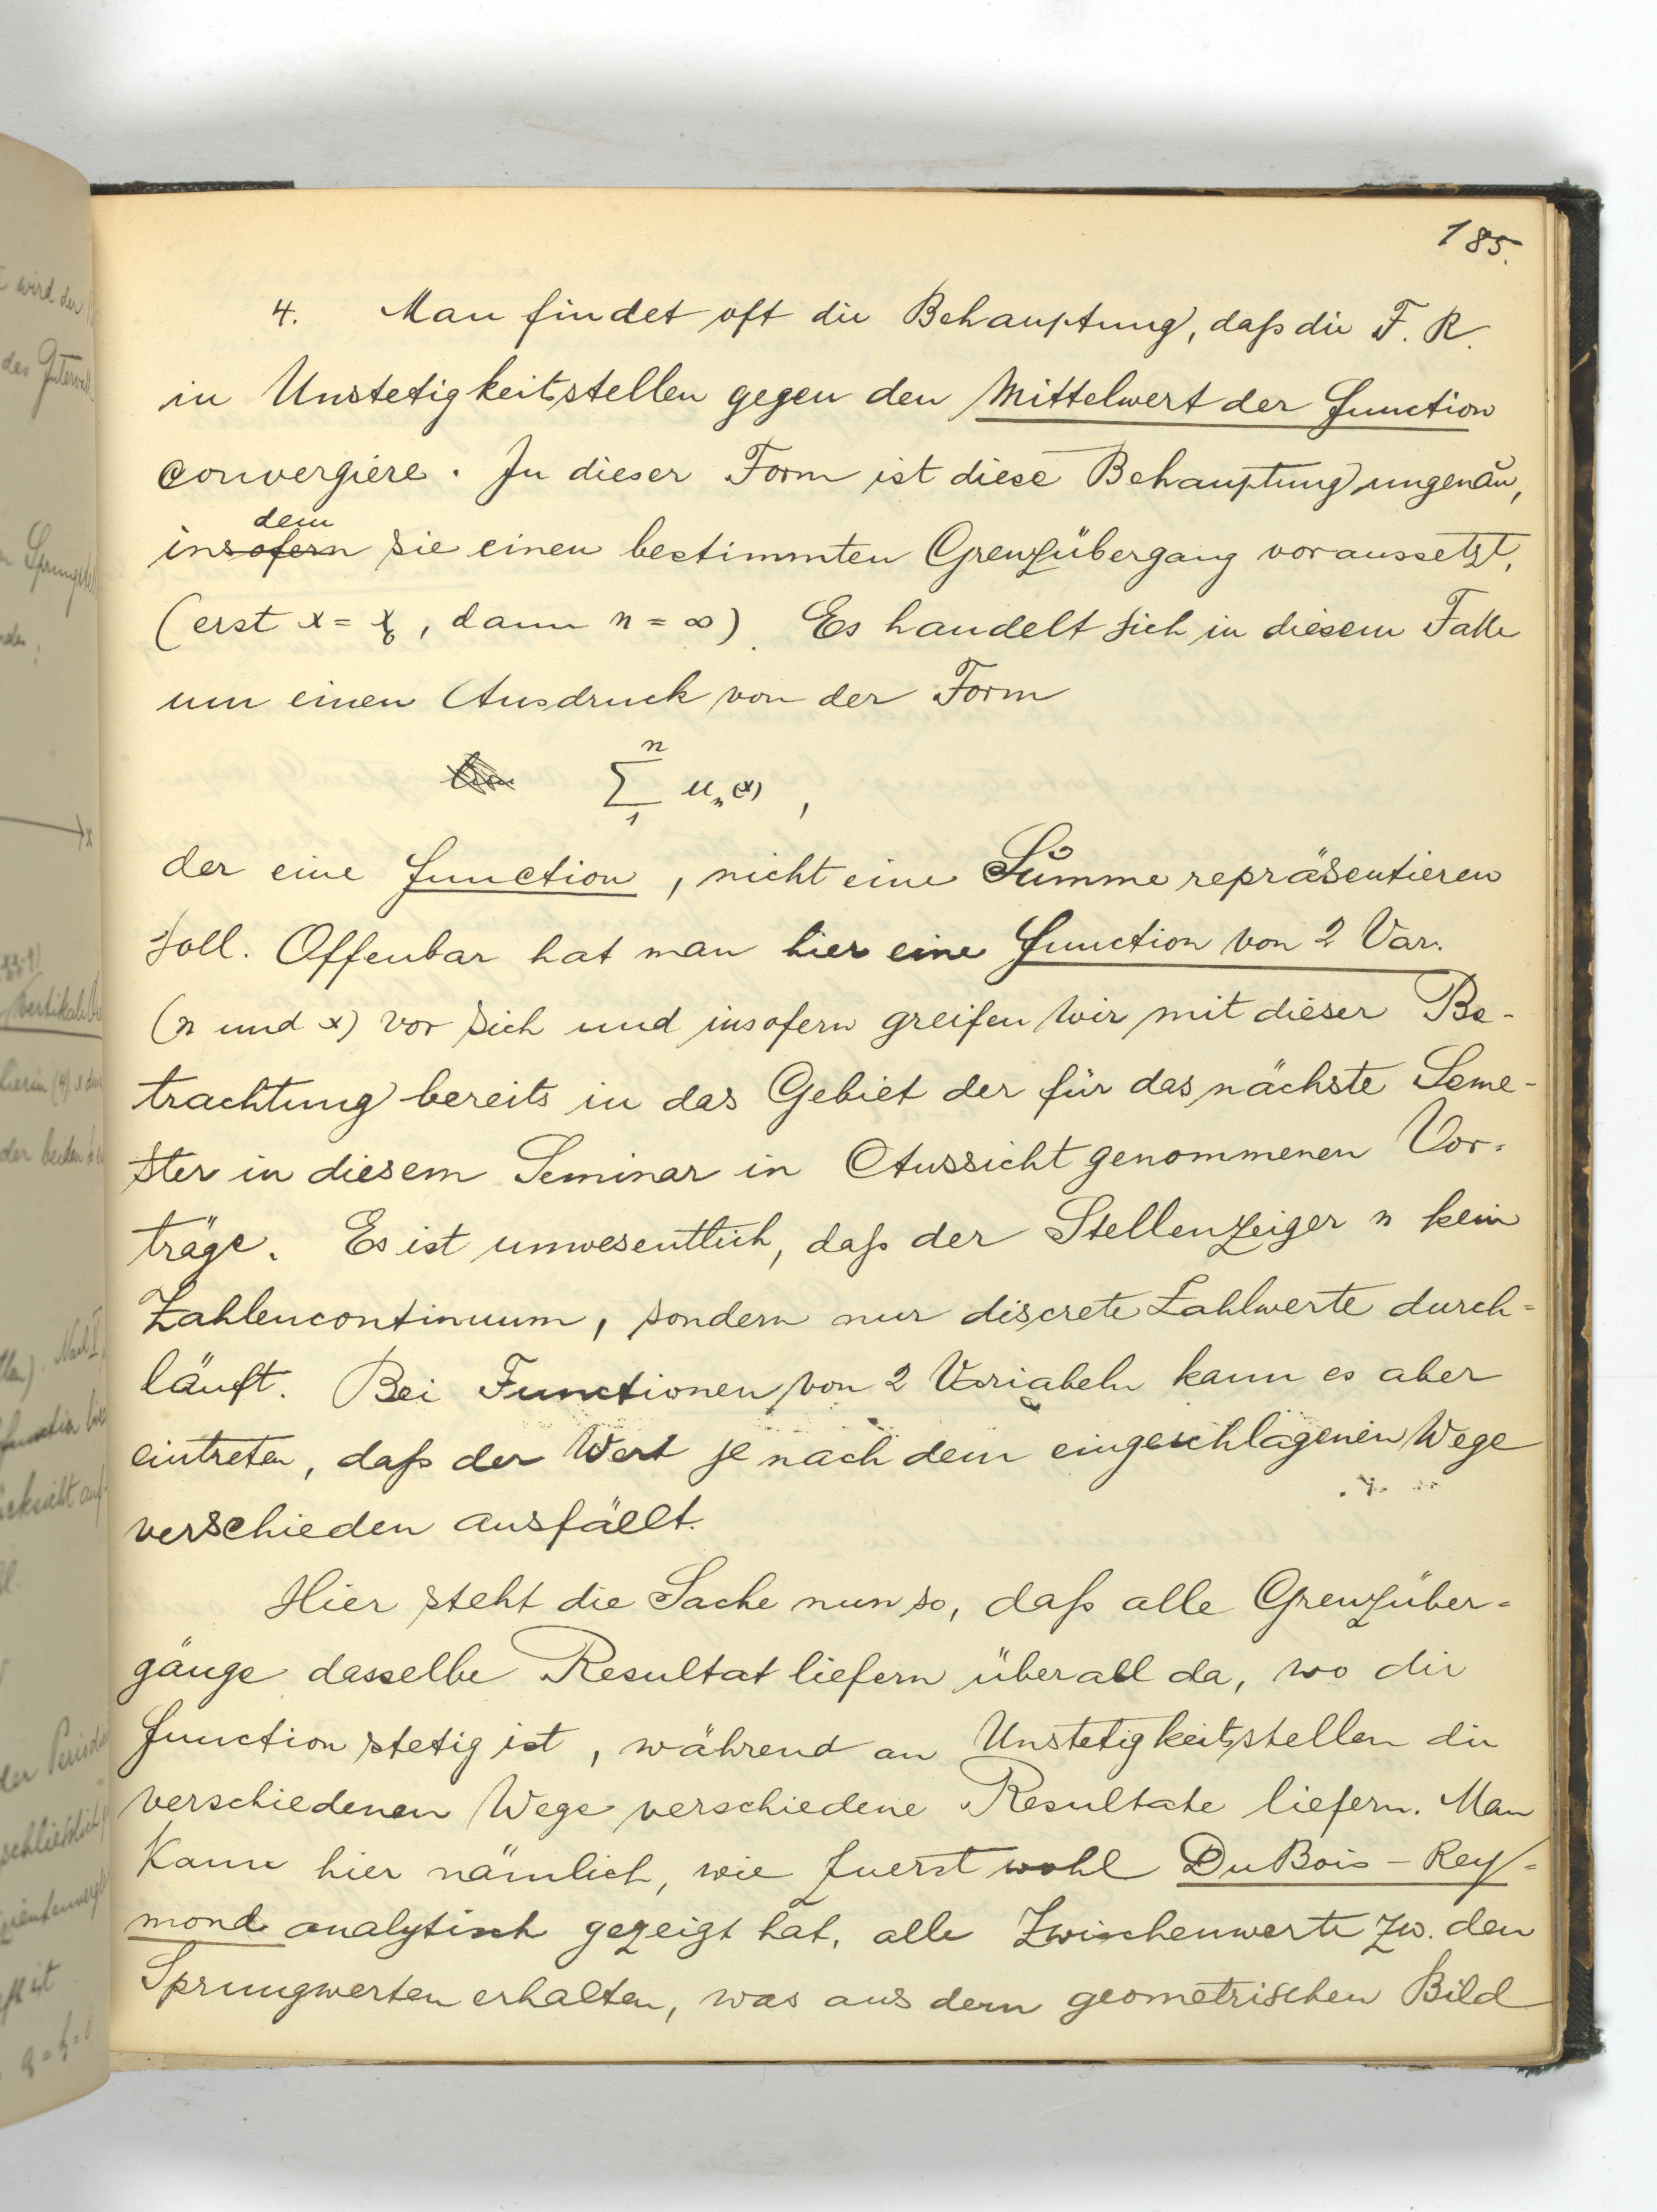 185.
4. Man findet oft die Behauptung, daß die F. R.
in Unstetigkeitsstellen gegen den Mittelwert der Function
convergiere. In dieser Form ist diese Behauptung ungenau,
dem
insofern sie einen bestimmten Grenzübergang voraussetzt,
(erst x = x₀, dann n = ∞). Es handelt sich in diesem Falle
um einen Ausdruck von der Form
lim n∑1 uₙ(x),
der eine Function, nicht eine Summe repräsentieren
soll. Offenbar hat man hier eine Function von 2 Var.
(n und x) vor sich und insofern greifen wir mit dieser Be-
trachtung bereits in das Gebiet der für das nächste Seme-
ster in diesem Seminar in Aussicht genommenen Vor-
träge. Es ist unwesentlich, daß der Stellenzeiger n kein
Zahlencontinuum, sondern nur discrete Zahlwerte durch-
läuft. Bei Functionen von 2 Variabeln kann es aber
eintreten, daß der Wert je nach dem eingeschlagenen Wege
verschieden ausfällt.
Hier steht die Sache nun so, daß alle Grenzüber-
gänge dasselbe Resultat liefern überall da, wo die
Function stetig ist, während an Unstetigkeitsstellen die
verschiedenen Wege verschiedene Resultate liefern. Man
kann hier nämlich, wie zuerst wohl DuBois-Rey-
mond analytisch gezeigt hat, alle Zwischenwerte zw. den
Sprungwerten erhalten, was aus dem geometrischen Bild